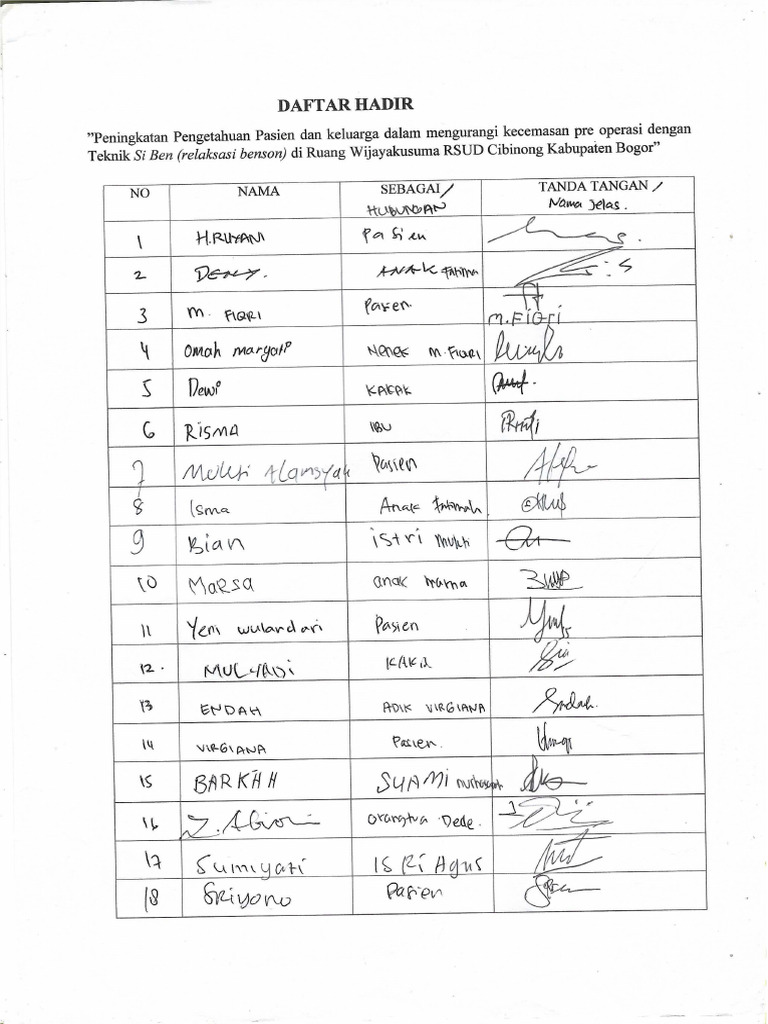 DAFTAR HADIR
"Peningkatan Pengetahuan Pasien dan keluarga dalam mengurangi kecemasan pre operasi dengan
Teknik Si Ben (relaksasi benson) di Ruang Wijayakusuma RSUD Cibinong Kabupaten Bogor"
NO NAMA SEBAGAI / HUBUNGAN TANDA TANGAN / Nama jelas.
1 H.RIYANI Pasien
2 DENY. ANAK Fatima
3 M. FIQRI Pasien M.FIQRI
4 Omah maryati Nenek M.FIQRI
5 Dewi KAKAK
6 RISMA IBU
7 Mukti Alamsyah Pasien
8 Isma Anak Fatimah.
9 Bian istri Mukti
10 MaRSa anak mama
11 Yeni wulandari Pasien
12. MULYADI
13 ENDAH ADIK VIRGIANA Endah.
14 VIRGIANA Pasien.
15 BARKAH SUAMI
16 Orangtua Dede.
17 Sumiyati ISRi Agus
18 Sriyono Pasien